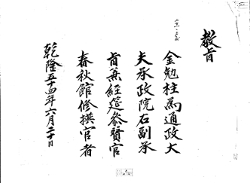 教旨
金勉柱爲通政大
夫承政院右副承
旨兼經筵參贊官
春秋館修撰官者
乾隆五十四年六月二十日